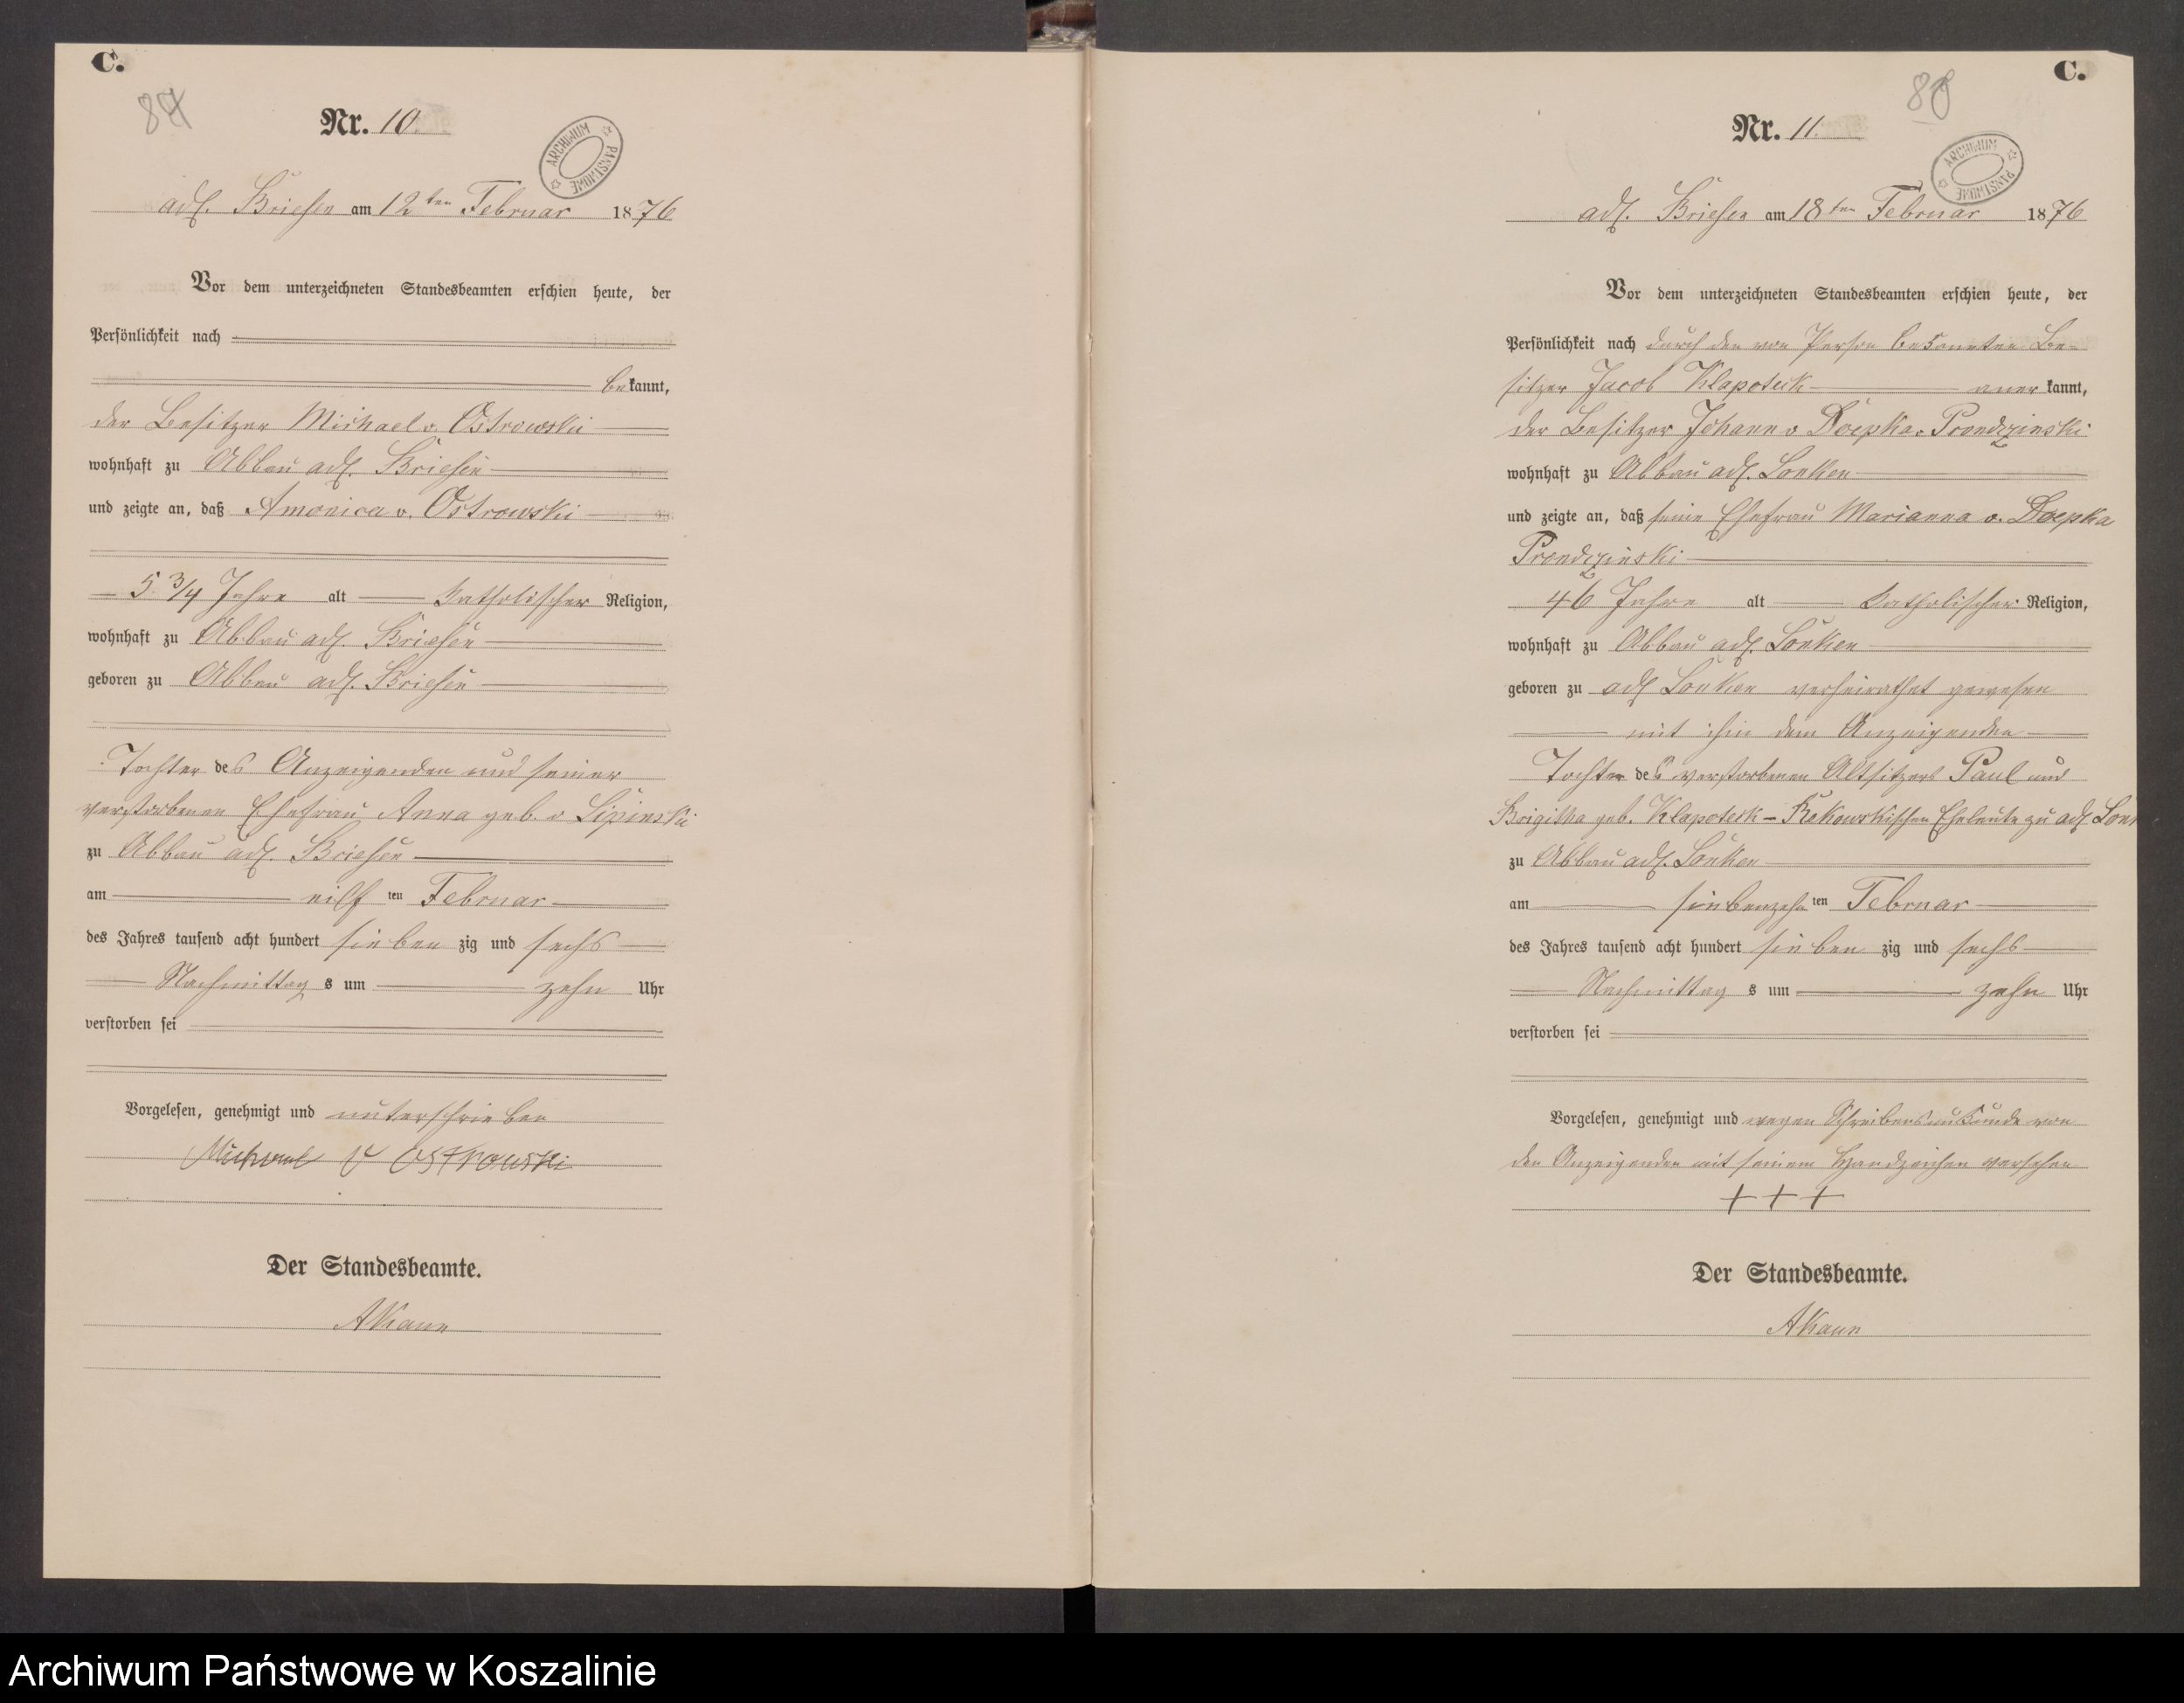 C.
Nr. 10.
ARCHIWUM PAŃSTWOWE
adl. Briesen am 12ten Februar 1876
Vor dem unterzeichneten Standesbeamten erschien heute, der
Persönlichkeit nach
bekannt,
der Besitzer Michael v. Ostrowski
wohnhaft zu Abbau adl. Briesen
und zeigte an, daß Amonica v. Ostrowski
5 3/4 Jahre alt katholischer Religion,
wohnhaft zu Abbau adl. Briesen
geboren zu Abbau adl. Briesen
Tochter des Anzeigenden und seiner
verstorbenen Ehefrau Anna geb. v Lipinski
zu Abbau adl. Briesen
am eilf ten Februar
des Jahres tausend acht hundert sieben zig und sechs
Nachmittag s um zehn Uhr
verstorben sei
Vorgelesen, genehmigt und unterschrieben
Michael v Ostrowski
Der Standesbeamte.
AKaun
C.
Nr. 11.
ARCHIWUM PAŃSTWOWE
adl. Briesen am 18ten Februar 1876
Vor dem unterzeichneten Standesbeamten erschien heute, der
Persönlichkeit nach durch den von Person bekannten Be-
sitzer Jacob Klapoteck aner kannt,
der Besitzer Johann v Doepka Prondzinski
wohnhaft zu Abbau adl. Lonken
und zeigte an, daß seine Ehefrau Marianna v. Doepka
Prondzinski
46 Jahre alt katholischer Religion,
wohnhaft zu Abbau adl. Lonken
geboren zu adl Lonken verheirathet gewesen
mit ihm dem Anzeigenden
Tochter des verstorbenen Altsitzers Paul und
Brigitha geb. Klapoteck - Rekowskischen Eheleute zu adl. Lon
zu Abbau adl. Lonken
am siebenzehn ten Februar
des Jahres tausend acht hundert sieben zig und sechs
Nachmittag s um zehn Uhr
verstorben sei
Vorgelesen, genehmigt und wegen Schreibensunkunde von
den Anzeigenden mit seinem Handzeichen versehen
+ + +
Der Standesbeamte.
AKaun
Archiwum Państwowe w Koszalinie